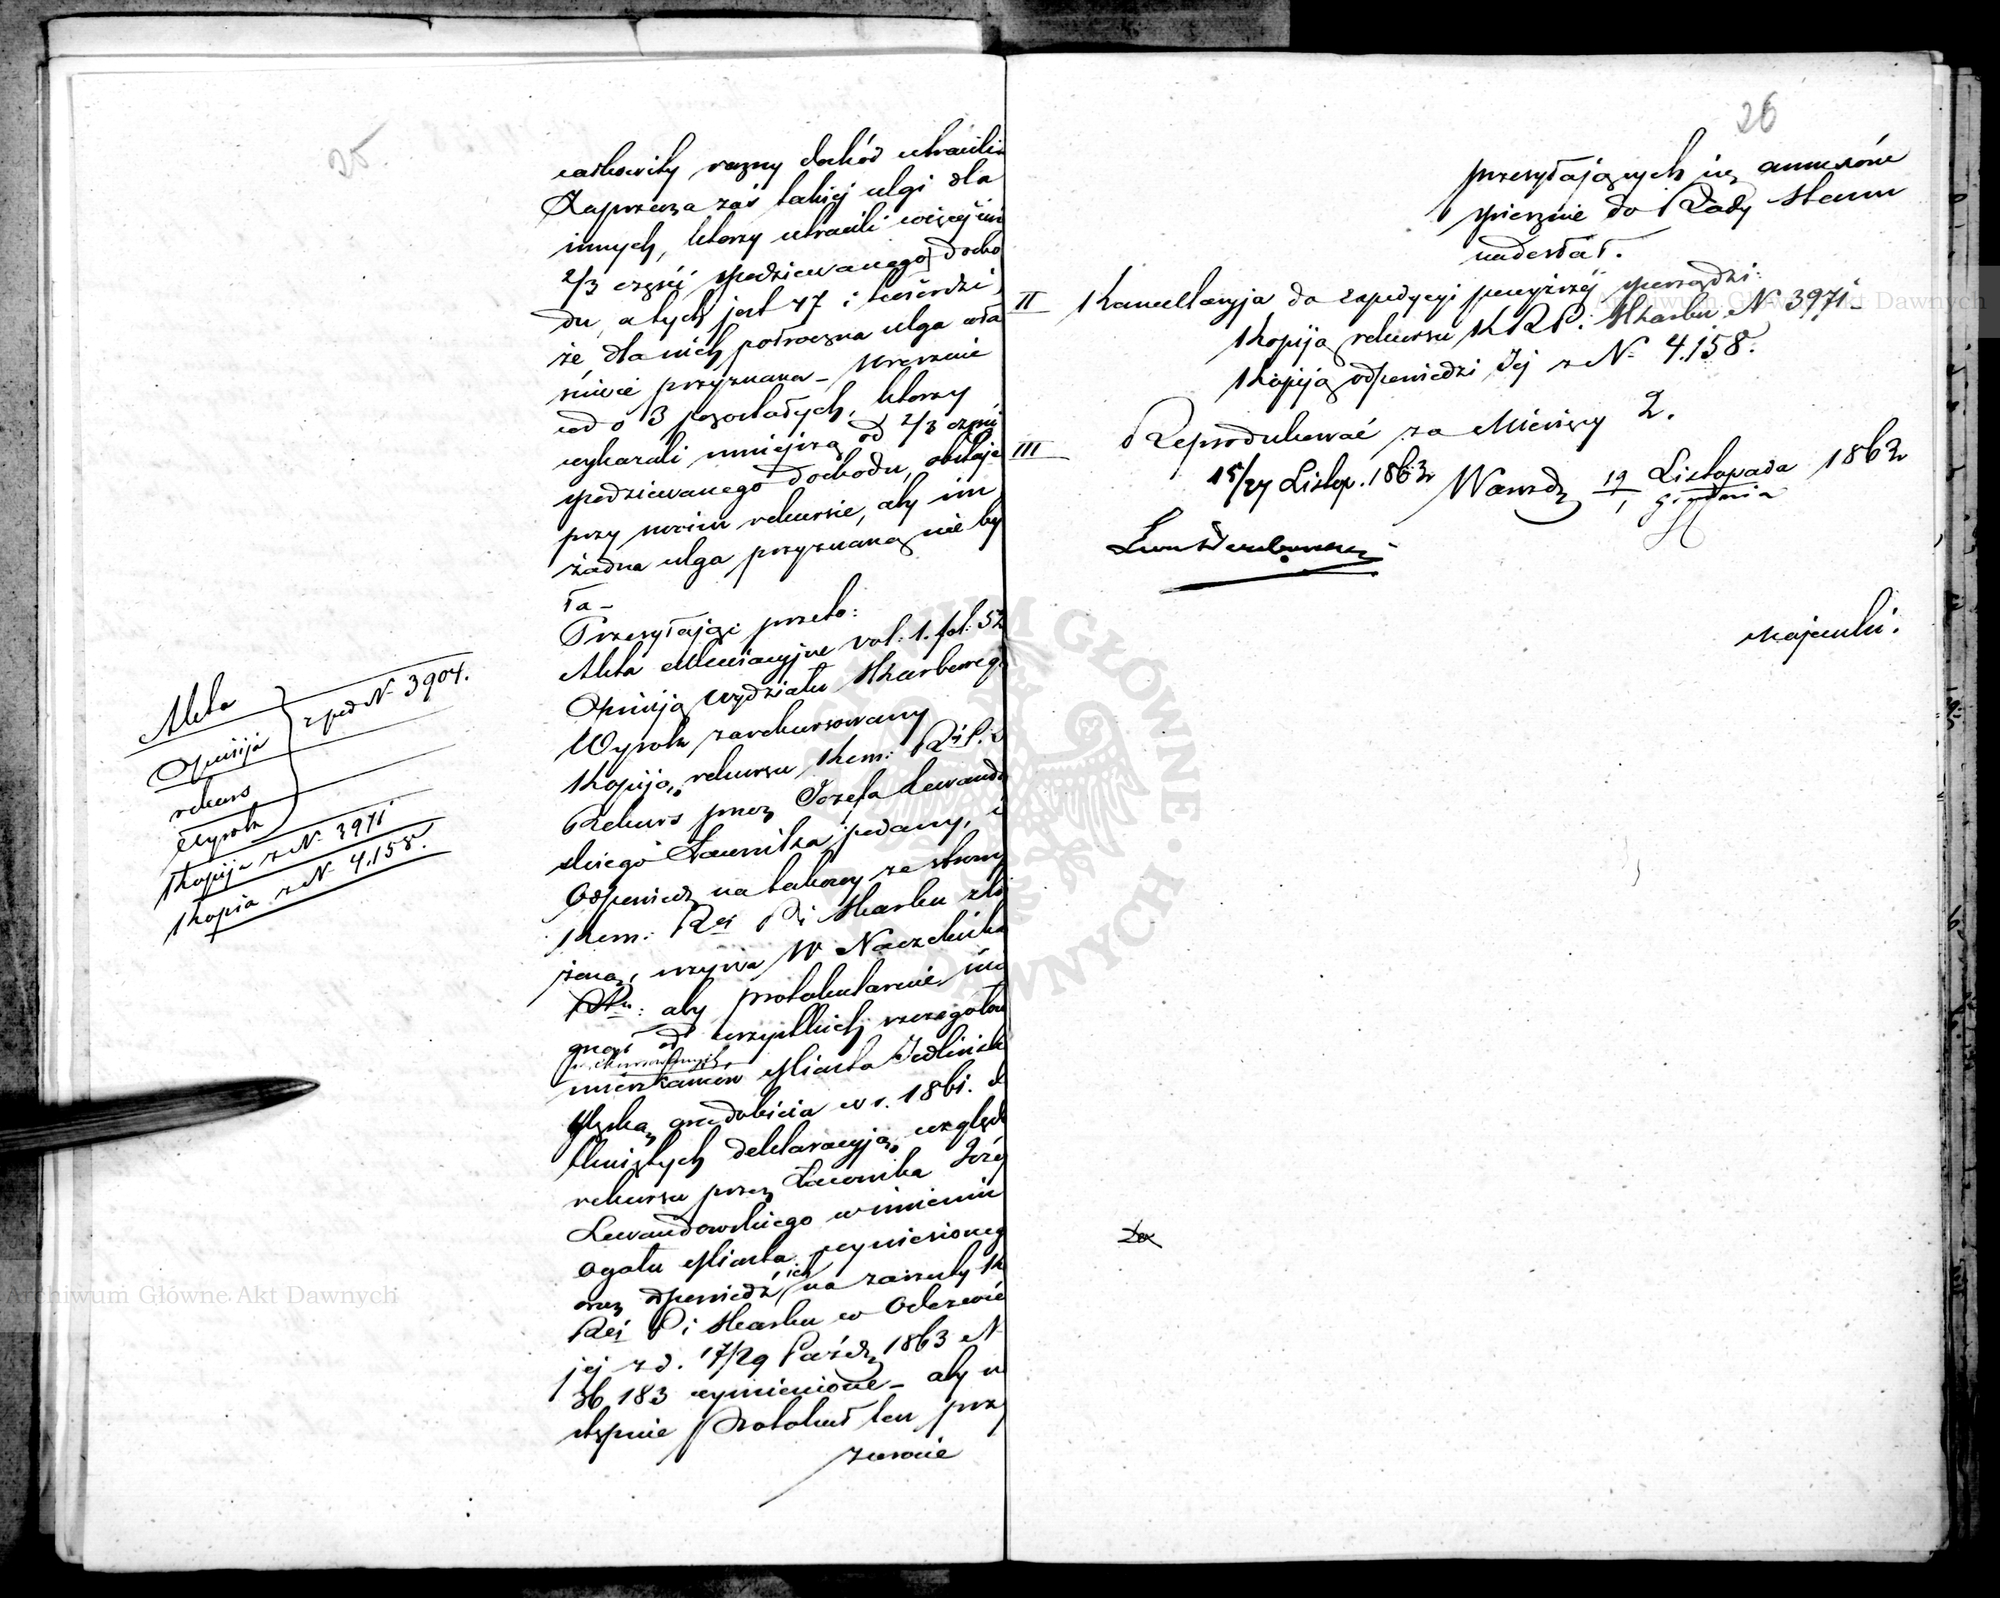 25
całkowity roczny dochód utracili
Zaprzecza zaś takiej ulgi dla
innych, którzy utracili więcej niż
2/3 części spodziewanego docho
du, a tych jest 47 i twierdzi,
że dla nich półroczna ulga wła
ściwie przyznana – Wreszcie
co do 3 pozostałych, którzy
wykazali mniejszą od 2/3 części
spodziewanego dochodu, obstaje
przy swoim rekursie, aby im
żadna ulga przyznaną nie by
ła –
Przesyłając przeto:
Akta Elucacyjne vol: 1. fol: 52
Opiniją Wydziału Skarbowego
Wyrok zarekursowany
Kopiją rekursu Kom: R. i P. S
Rekurs przez Józefa Lewando
skiego Ławnika podany, i
Odpowiedź na takowy ze strony
Kom: Rej P. i Skarbu zło
żoną, wzywa W Naczelnika
Ptu: aby protokularnie ścią
gnął od wszystkich szczegółow
mieszkańców Miasta Jedlińsk
klęską gradobicia w r. 1861. d
tkniętych deklaracyją, względe
rekursu przez Ławnika Józe
Lewandowskiego w imieniu
ogółu Miasta wyniesioneg
oraz odpowiedź ich na zarzuty K
Rej P i Skarbu w Odezwie
jej z d. 17/29 Paźdz 1863 N
36183 wymienione – aby n
stępnie Protokuł ten przy
zwrocie
Akta
Opinija
rekurs
Wyrok
z pod N 3904.
Kopija z N. 3971
Kopia z N. 4.158.
26
przesyłających się annexów
śpiesznie do Rady Stanu
nadesłał.
II Kancellaryja do expedycyi powyższej sporządzi:
Kopiją rekursu K R P. i Skarbu N 3971
Kopiją odpowiedzi Jej z N. 4.158.
III Reprodukować za Miesięcy 2.
15/27 Listop. 1863 Warsz d. 19/1 Listopada/Grudnia 1863
Archiwum Główne Akt Dawnych
Archiwum Główne Akt Dawnych
ARCHIWUM GŁÓWNE AKT DAWNYCH